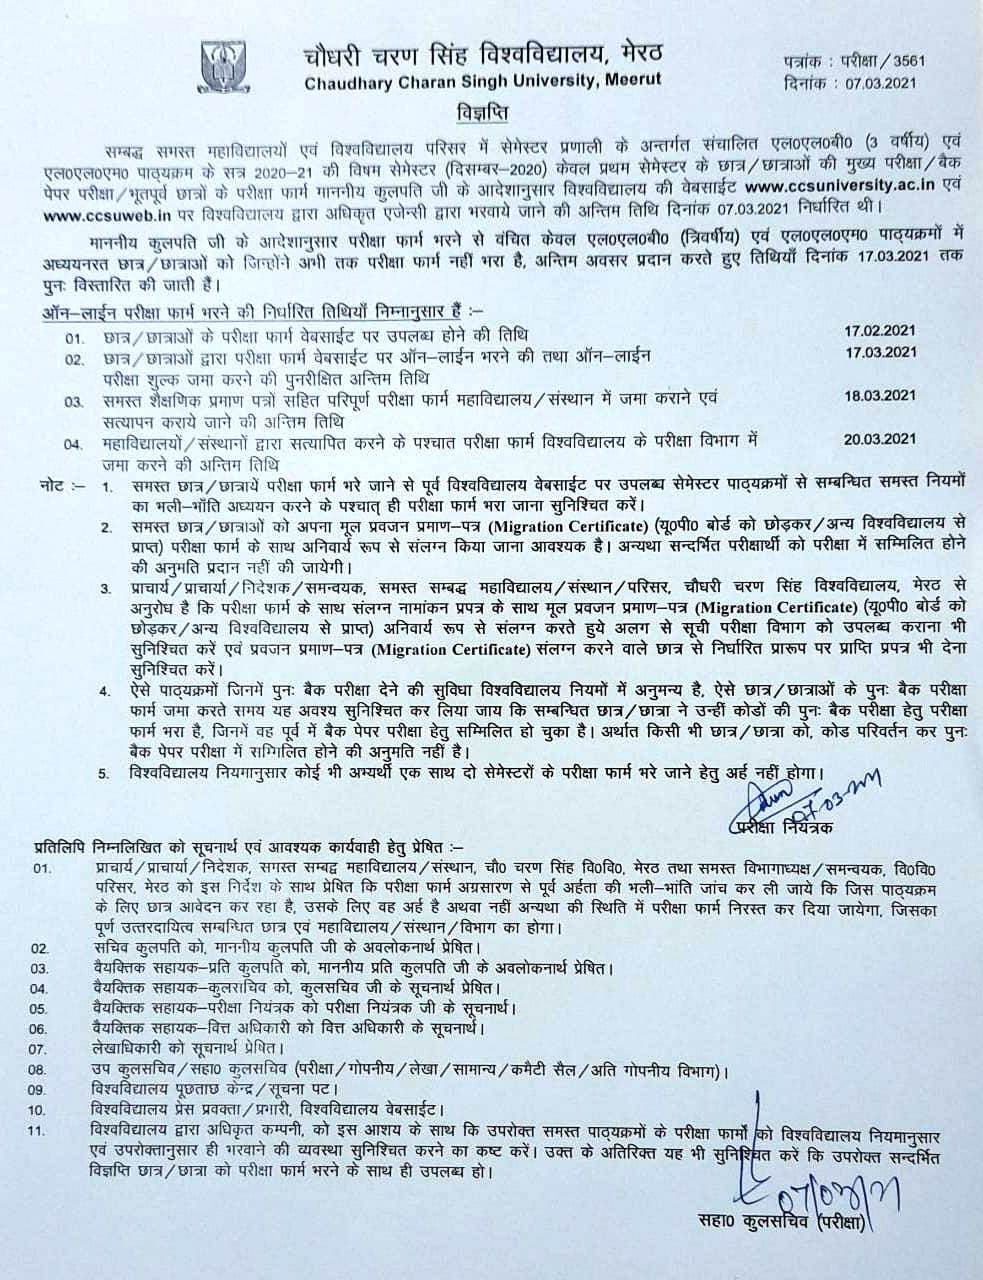 चौधरी चरण सिंह विश्वविद्यालय, मेरठ
Chaudhary Charan Singh University, Meerut
पत्रांक : परीक्षा/3561
दिनांक : 07.03.2021
विज्ञप्ति
सम्बद्ध समस्त महाविद्यालयों एवं विश्वविद्यालय परिसर में सेमेस्टर प्रणाली के अन्तर्गत संचालित एल0एल0बी0 (3 वर्षीय) एवं
एल0एल0एम0 पाठ्यक्रम के सत्र 2020-21 की विषम सेमेस्टर (दिसम्बर-2020) केवल प्रथम सेमेस्टर के छात्र/छात्राओं की मुख्य परीक्षा/बैक
पेपर परीक्षा/भूतपूर्व छात्रों के परीक्षा फार्म माननीय कुलपति जी के आदेशानुसार विश्वविद्यालय की वेबसाईट www.ccsuniversity.ac.in एवं
www.ccsuweb.in पर विश्वविद्यालय द्वारा अधिकृत एजेन्सी द्वारा भरवाये जाने की अन्तिम तिथि दिनांक 07.03.2021 निर्धारित थी।
माननीय कुलपति जी के आदेशानुसार परीक्षा फार्म भरने से वंचित केवल एल0एल0बी0 (त्रिवर्षीय) एवं एल0एल0एम0 पाठ्यक्रमों में
अध्ययनरत छात्र/छात्राओं को जिन्होंने अभी तक परीक्षा फार्म नहीं भरा है, अन्तिम अवसर प्रदान करते हुए तिथियाँ दिनांक 17.03.2021 तक
पुनः विस्तारित की जाती हैं।
ऑन-लाईन परीक्षा फार्म भरने की निर्धारित तिथियाँ निम्नानुसार हैं :-
01. छात्र/छात्राओं के परीक्षा फार्म वेबसाईट पर उपलब्ध होने की तिथि 17.02.2021
02. छात्र/छात्राओं द्वारा परीक्षा फार्म वेबसाईट पर ऑन-लाईन भरने की तथा ऑन-लाईन 17.03.2021
परीक्षा शुल्क जमा करने की पुनरीक्षित अन्तिम तिथि
03. समस्त शैक्षणिक प्रमाण पत्रों सहित परिपूर्ण परीक्षा फार्म महाविद्यालय/संस्थान में जमा कराने एवं 18.03.2021
सत्यापन कराये जाने की अन्तिम तिथि
04. महाविद्यालयों/संस्थानों द्वारा सत्यापित करने के पश्चात परीक्षा फार्म विश्वविद्यालय के परीक्षा विभाग में 20.03.2021
जमा करने की अन्तिम तिथि
नोट :- 1. समस्त छात्र/छात्रायें परीक्षा फार्म भरे जाने से पूर्व विश्वविद्यालय वेबसाईट पर उपलब्ध सेमेस्टर पाठ्यक्रमों से सम्बन्धित समस्त नियमों
का भली-भाँति अध्ययन करने के पश्चात् ही परीक्षा फार्म भरा जाना सुनिश्चित करें।
2. समस्त छात्र/छात्राओं को अपना मूल प्रवजन प्रमाण-पत्र (Migration Certificate) (यू0पी0 बोर्ड को छोड़कर/अन्य विश्वविद्यालय से
प्राप्त) परीक्षा फार्म के साथ अनिवार्य रूप से संलग्न किया जाना आवश्यक है। अन्यथा सन्दर्भित परीक्षार्थी को परीक्षा में सम्मिलित होने
की अनुमति प्रदान नहीं की जायेगी।
3. प्राचार्य/प्राचार्या/निदेशक/समन्वयक, समस्त सम्बद्ध महाविद्यालय/संस्थान/परिसर, चौधरी चरण सिंह विश्वविद्यालय, मेरठ से
अनुरोध है कि परीक्षा फार्म के साथ संलग्न नामांकन प्रपत्र के साथ मूल प्रवजन प्रमाण-पत्र (Migration Certificate) (यू0पी0 बोर्ड को
छोड़कर/अन्य विश्वविद्यालय से प्राप्त) अनिवार्य रूप से संलग्न करते हुये अलग से सूची परीक्षा विभाग को उपलब्ध कराना भी
सुनिश्चित करें एवं प्रवजन प्रमाण-पत्र (Migration Certificate) संलग्न करने वाले छात्र से निर्धारित प्रारूप पर प्राप्ति प्रपत्र भी देना
सुनिश्चित करें।
4. ऐसे पाठ्यक्रमों जिनमें पुनः बैक परीक्षा देने की सुविधा विश्वविद्यालय नियमों में अनुमन्य है, ऐसे छात्र/छात्राओं के पुनः बैक परीक्षा
फार्म जमा करते समय यह अवश्य सुनिश्चित कर लिया जाय कि सम्बन्धित छात्र/छात्रा ने उन्हीं कोडों की पुनः बैक परीक्षा हेतु परीक्षा
फार्म भरा है, जिनमें वह पूर्व में बैक पेपर परीक्षा हेतु सम्मिलित हो चुका है। अर्थात किसी भी छात्र/छात्रा को, कोड परिवर्तन कर पुनः
बैक पेपर परीक्षा में सम्मिलित होने की अनुमति नहीं है।
5. विश्वविद्यालय नियमानुसार कोई भी अभ्यर्थी एक साथ दो सेमेस्टरों के परीक्षा फार्म भरे जाने हेतु अर्ह नहीं होगा।
परीक्षा नियंत्रक
प्रतिलिपि निम्नलिखित को सूचनार्थ एवं आवश्यक कार्यवाही हेतु प्रेषित :-
01. प्राचार्य/प्राचार्या/निदेशक, समस्त सम्बद्ध महाविद्यालय/संस्थान, चौ0 चरण सिंह वि0वि0, मेरठ तथा समस्त विभागाध्यक्ष/समन्वयक, वि0वि0
परिसर, मेरठ को इस निर्देश के साथ प्रेषित कि परीक्षा फार्म अग्रसारण से पूर्व अर्हता की भली-भांति जांच कर ली जाये कि जिस पाठ्यक्रम
के लिए छात्र आवेदन कर रहा है, उसके लिए वह अर्ह है अथवा नहीं अन्यथा की स्थिति में परीक्षा फार्म निरस्त कर दिया जायेगा, जिसका
पूर्ण उत्तरदायित्व सम्बन्धित छात्र एवं महाविद्यालय/संस्थान/विभाग का होगा।
02. सचिव कुलपति को, माननीय कुलपति जी के अवलोकनार्थ प्रेषित।
03. वैयक्तिक सहायक-प्रति कुलपति को, माननीय प्रति कुलपति जी के अवलोकनार्थ प्रेषित।
04. वैयक्तिक सहायक-कुलसचिव को, कुलसचिव जी के सूचनार्थ प्रेषित।
05. वैयक्तिक सहायक-परीक्षा नियंत्रक को परीक्षा नियंत्रक जी के सूचनार्थ।
06. वैयक्तिक सहायक-वित्त अधिकारी को वित्त अधिकारी के सूचनार्थ।
07. लेखाधिकारी को सूचनार्थ प्रेषित।
08. उप कुलसचिव/सहा0 कुलसचिव (परीक्षा/गोपनीय/लेखा/सामान्य/कमैटी सैल/अति गोपनीय विभाग)।
09. विश्वविद्यालय पूछताछ केन्द्र/सूचना पट।
10. विश्वविद्यालय प्रेस प्रवक्ता/प्रभारी, विश्वविद्यालय वेबसाईट।
11. विश्वविद्यालय द्वारा अधिकृत कम्पनी, को इस आशय के साथ कि उपरोक्त समस्त पाठ्यक्रमों के परीक्षा फार्मों को विश्वविद्यालय नियमानुसार
एवं उपरोक्तानुसार ही भरवाने की व्यवस्था सुनिश्चित करने का कष्ट करें। उक्त के अतिरिक्त यह भी सुनिश्चित करें कि उपरोक्त सन्दर्भित
विज्ञप्ति छात्र/छात्रा को परीक्षा फार्म भरने के साथ ही उपलब्ध हो।
07/03/21
सहा0 कुलसचिव (परीक्षा)